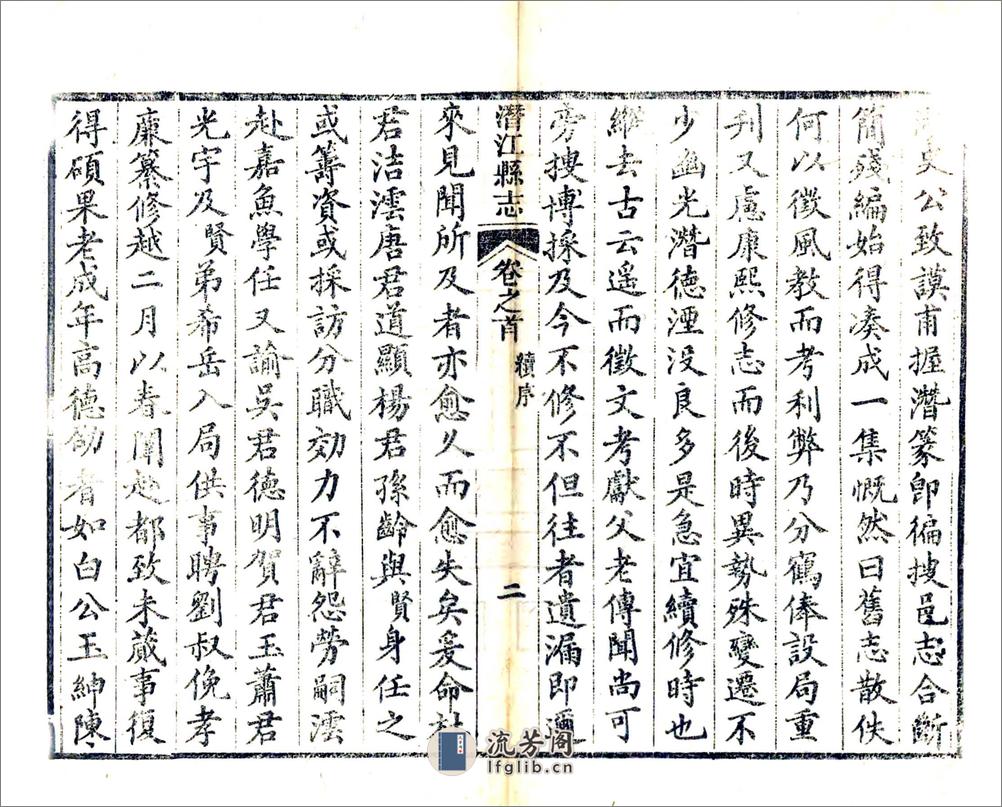 史公致謨甫握潛篆卽徧搜邑志合斷
簡殘編始得凑成一集慨然曰舊志散佚
何以徵風教而考利弊乃分鶴俸設局重
刋又慮康熙修志而後時異勢殊變遷不
少幽光潛德湮没良多是急宜續修時也
維去古云遥而徵文考獻父老傳聞尚可
旁搜博採及今不修不但往者遺漏卽邇
潛江縣志
卷之首
續序
二
來見聞所及者亦愈久而愈失矣爰命
君洁澐唐君道顯楊君孫齡與賢身任之
或籌資或採訪分職効力不辭怨勞嗣澐
赴嘉魚學任又諭吳君德明賀君玉蕭君
光宇及賢弟希岳入局供事聘劉叔俛孝
廉纂修越二月以春闈赴都致未蕆事復
得碩果老成年高德劭者如白公玉紳陳
流芳阁
lfglib.cn